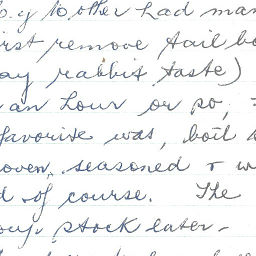 y Mother had man
irst remove tail bo
ay rabbit taste)
an hour or so,
favorite was, boil
oven, seasoned + w
d of course. The
oup stock later-